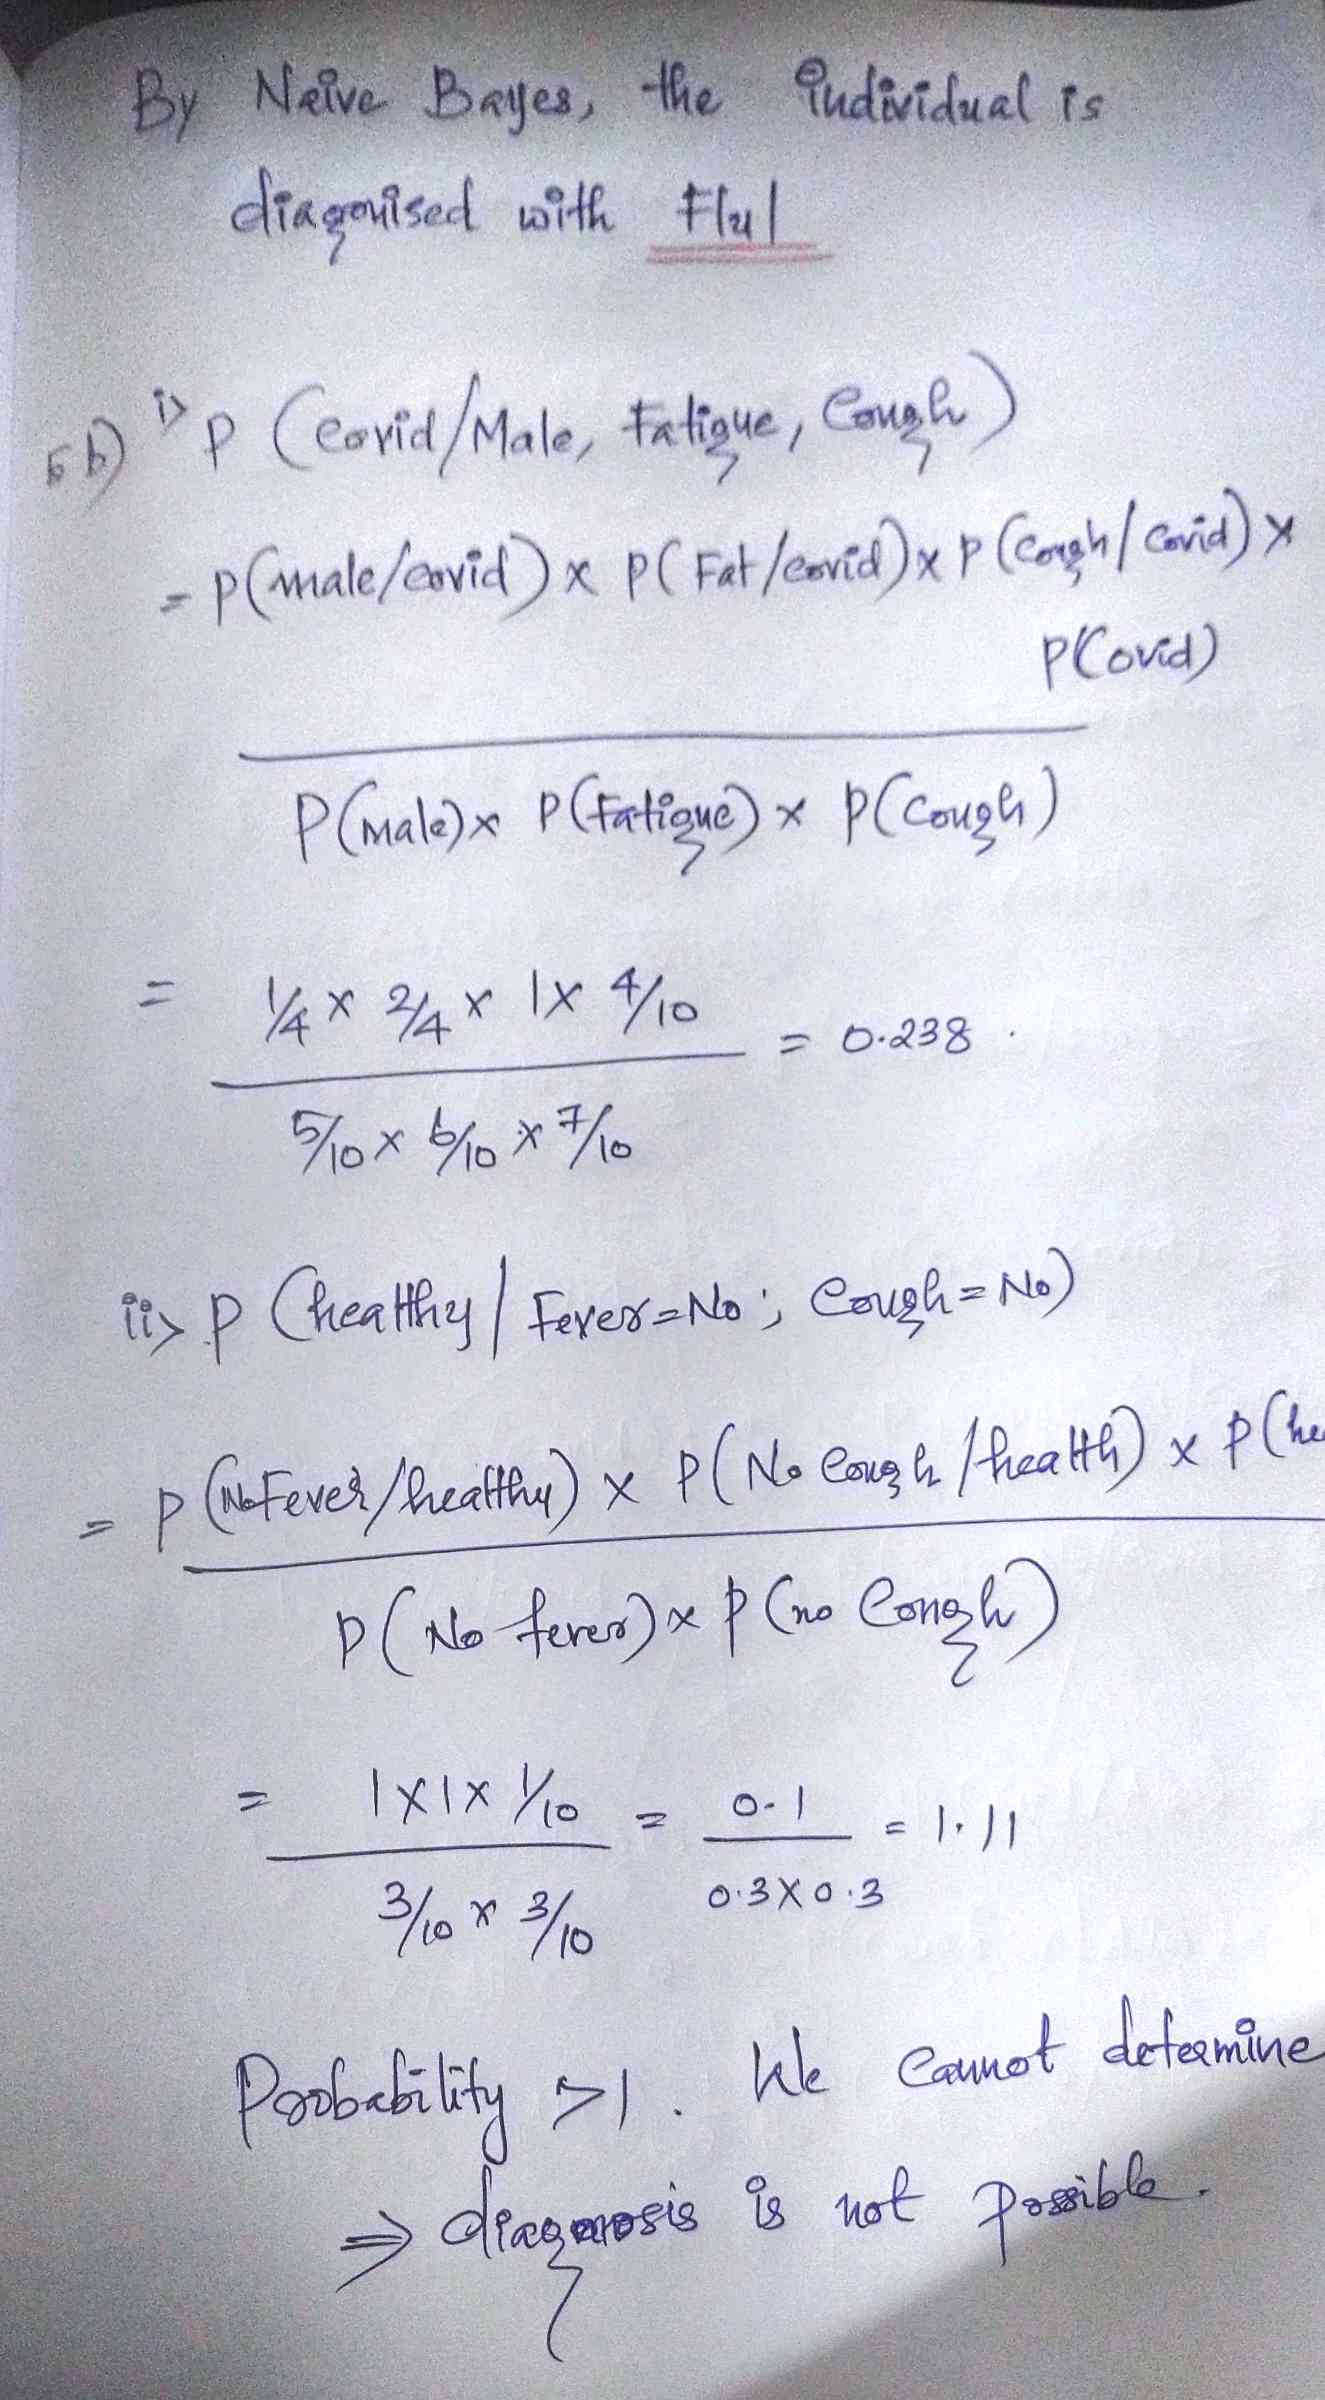 By Naive Bayes, the individual is
diagonised with Flu
5b) i> P (Covid/Male, Fatigue, Cough)
= P(male/covid) x P(Fat/covid) x P(Cough/Covid) x
P(Covid)
P(male) x P(Fatigue) x P(Cough)
= 1/4 x 2/4 x 1 x 4/10 = 0.238.
5/10 x 6/10 x 7/10
ii> P (healthy / Fever=No; Cough=No)
= P(NoFever/healthy) x P(No Cough/health) x P(he
P(No fever) x P(no Cough)
= 1x1x 1/10 = 0.1 = 1.11
3/10 x 3/10 0.3x0.3
Probability >1. We cannot determine
⇒ diagnosis is not possible.